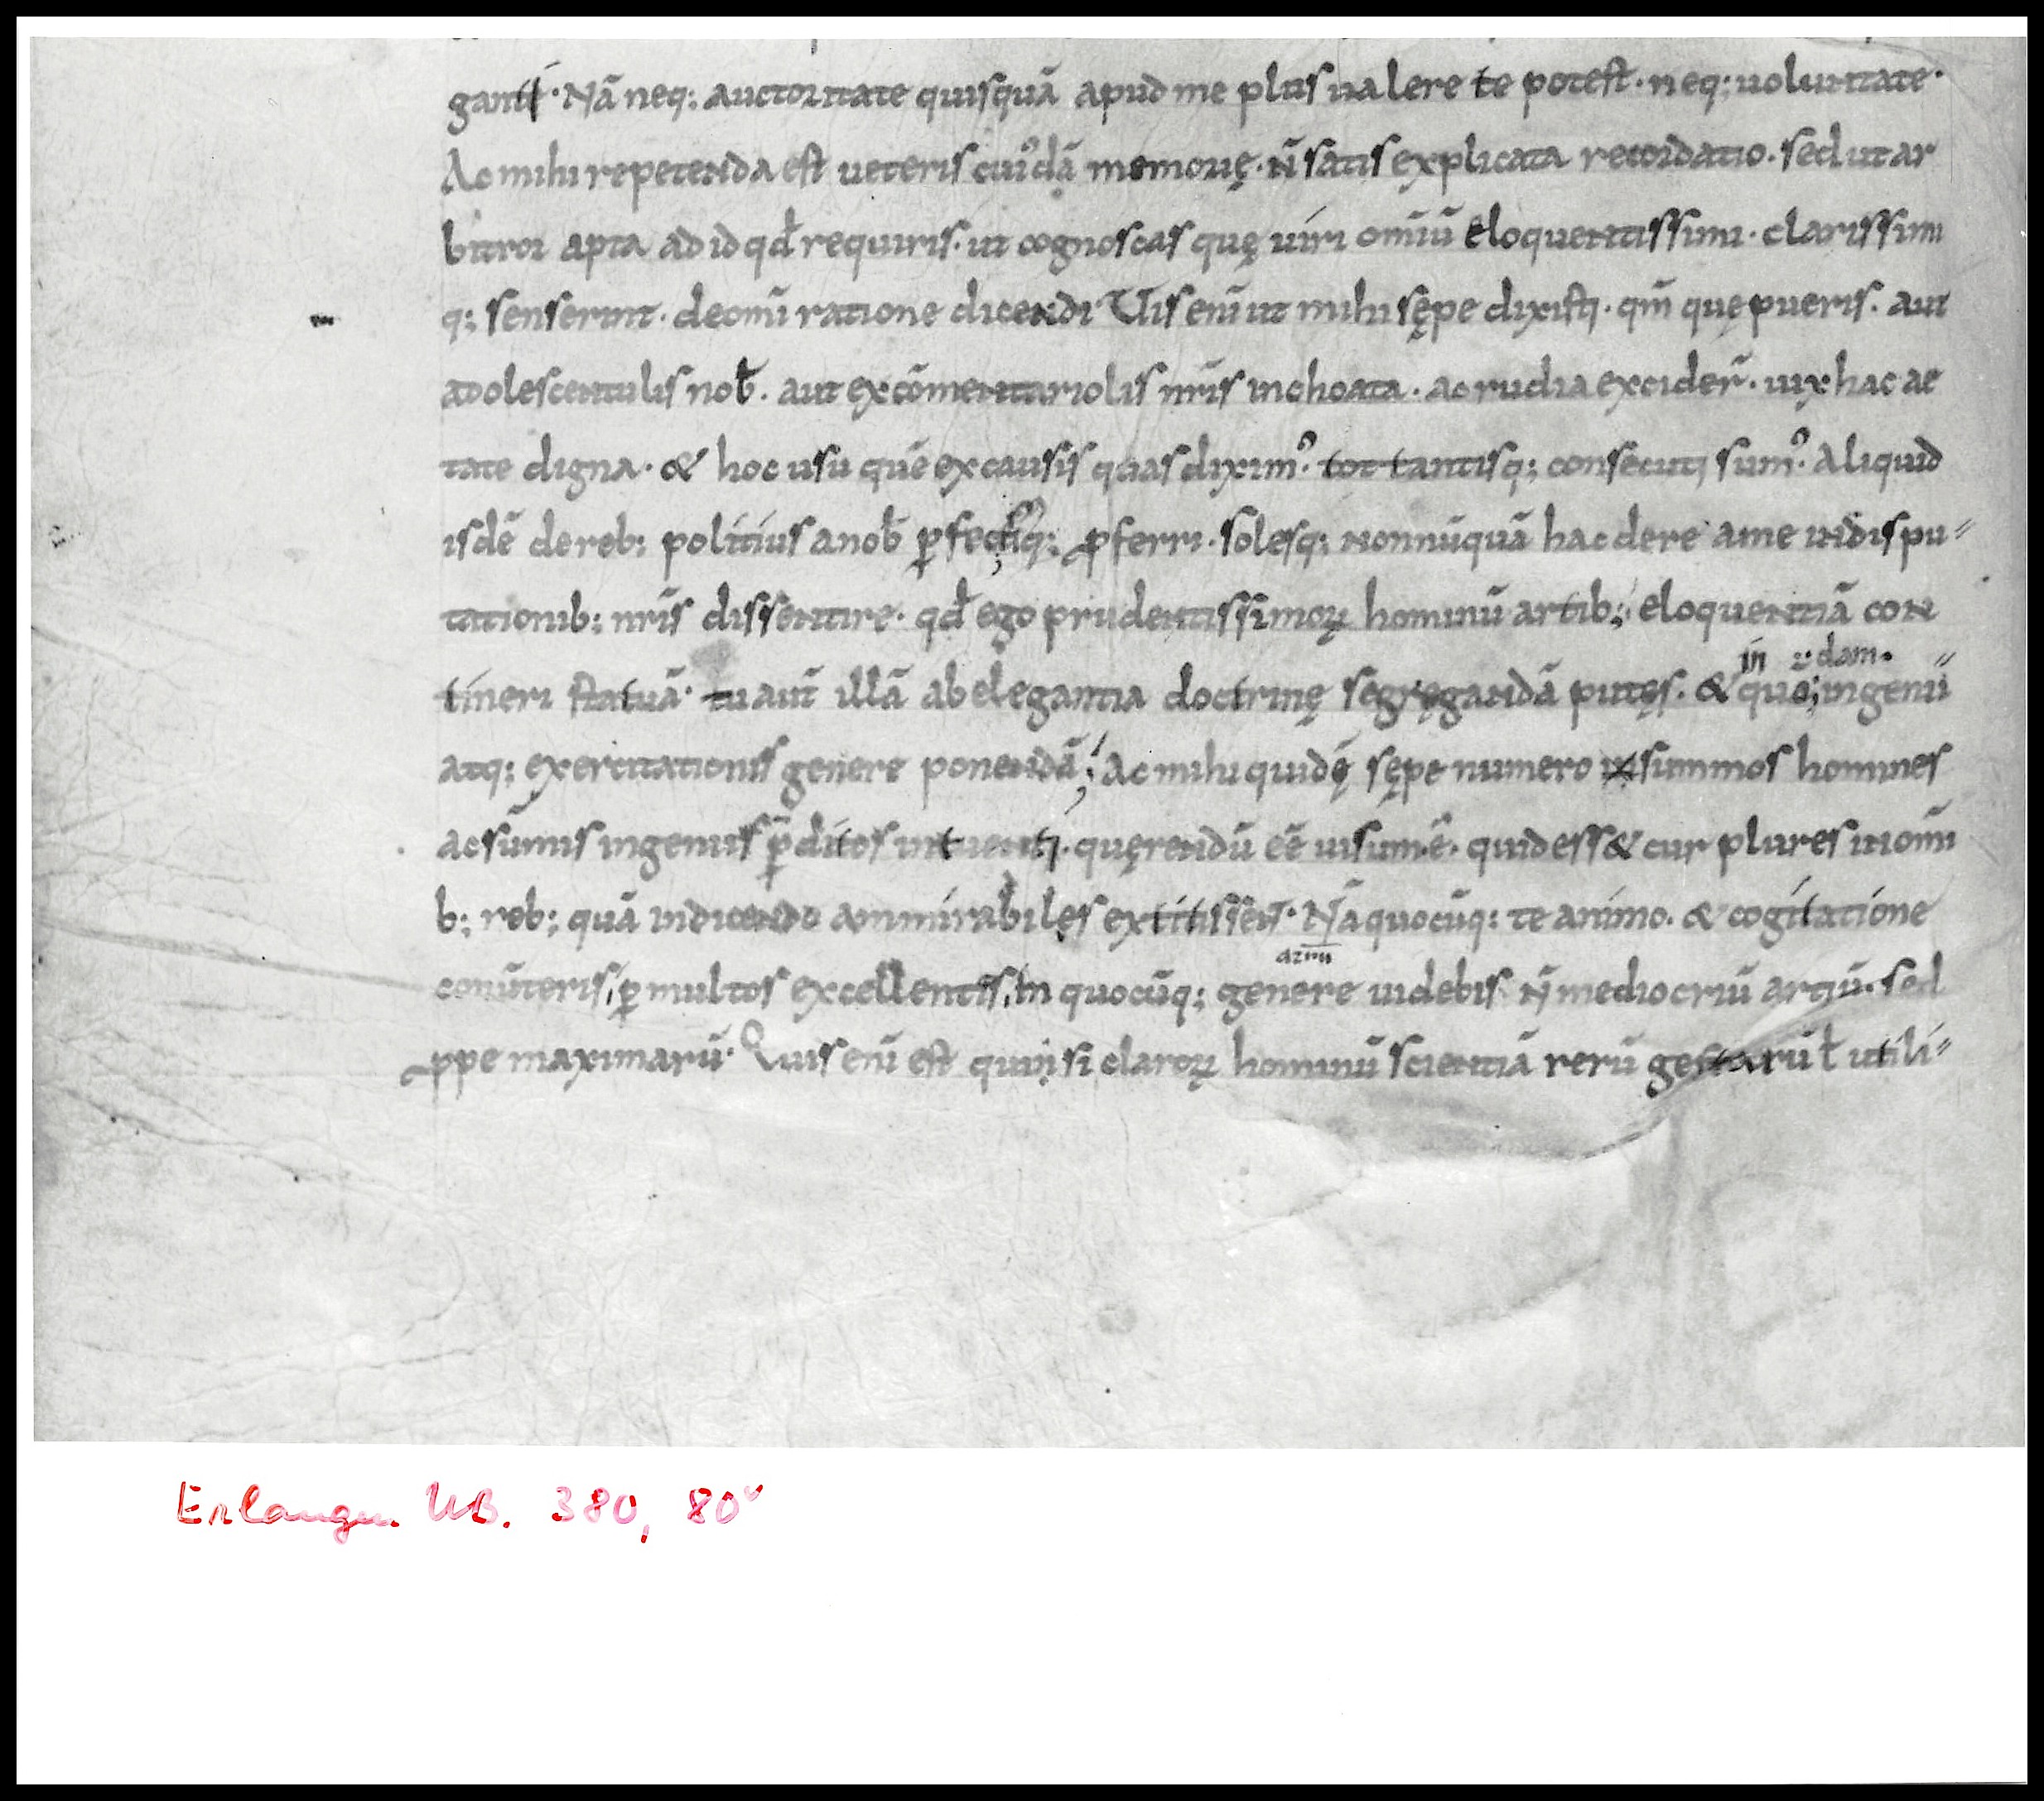 gantí · Nā neq; auctoritate quisquā apud me plus ualere te potest · neq; uoluntate ·
Ac mihi repetenda est ueteris cuiꝰdā memorię · n̄ satis explicata recordatio · sed ut ar
bitror apta ad id qđ requiris · ut cognoscas quę uiri omīū eloquentissimi · clarissimi
q; senserint · de om̄i ratione dicendi Vis eni ut mihi sępe dixisti · qm̄ quę pueris · aut
adolescentulis noƀ · aut ex cōmentariolis nr̄is inchoata · ac rudia excider̄ · uix hac ae
tate digna · & hoc usu quē ex causis quas diximꝰ · tot tantisq; consecuti sumꝰ · Aliquid
isdē de reb; politius a noƀ ꝑfectiꝰq; ꝓferri · solesq; nonnūquā hac de re a me in dispu〃
tationib; nr̄is dissentire · qđ ego prudentissimoꝝ hominū artib; eloquentiā con
in ::dam·
tineri statuā · tu aut̄ illā ab elegantia doctrinę segręgandā putęs · & quo; ingenii
atq; exercitationis genere ponendā; Ac mihi quidę sępe numero in summos homines
ac sūmis ingeniis p̄ditos intuenti · quęrendū eē uisum ē · quid ess& cur plures in om̄i
b; reb; quā in dicendo ammirabiles extitissen̄t · Nā quocūq; te animo · & cogitatione
conūteris, ꝑmultos excellentis, In quocūq; genere uidebis n̄ mediocriū artiū · sed
ꝓpe maximarū · Quis enī est qui n̄ si claroꝝ hominū scientiā rerū gestarū ł utili〃
Erlangen UB. 380, 80ᵛ